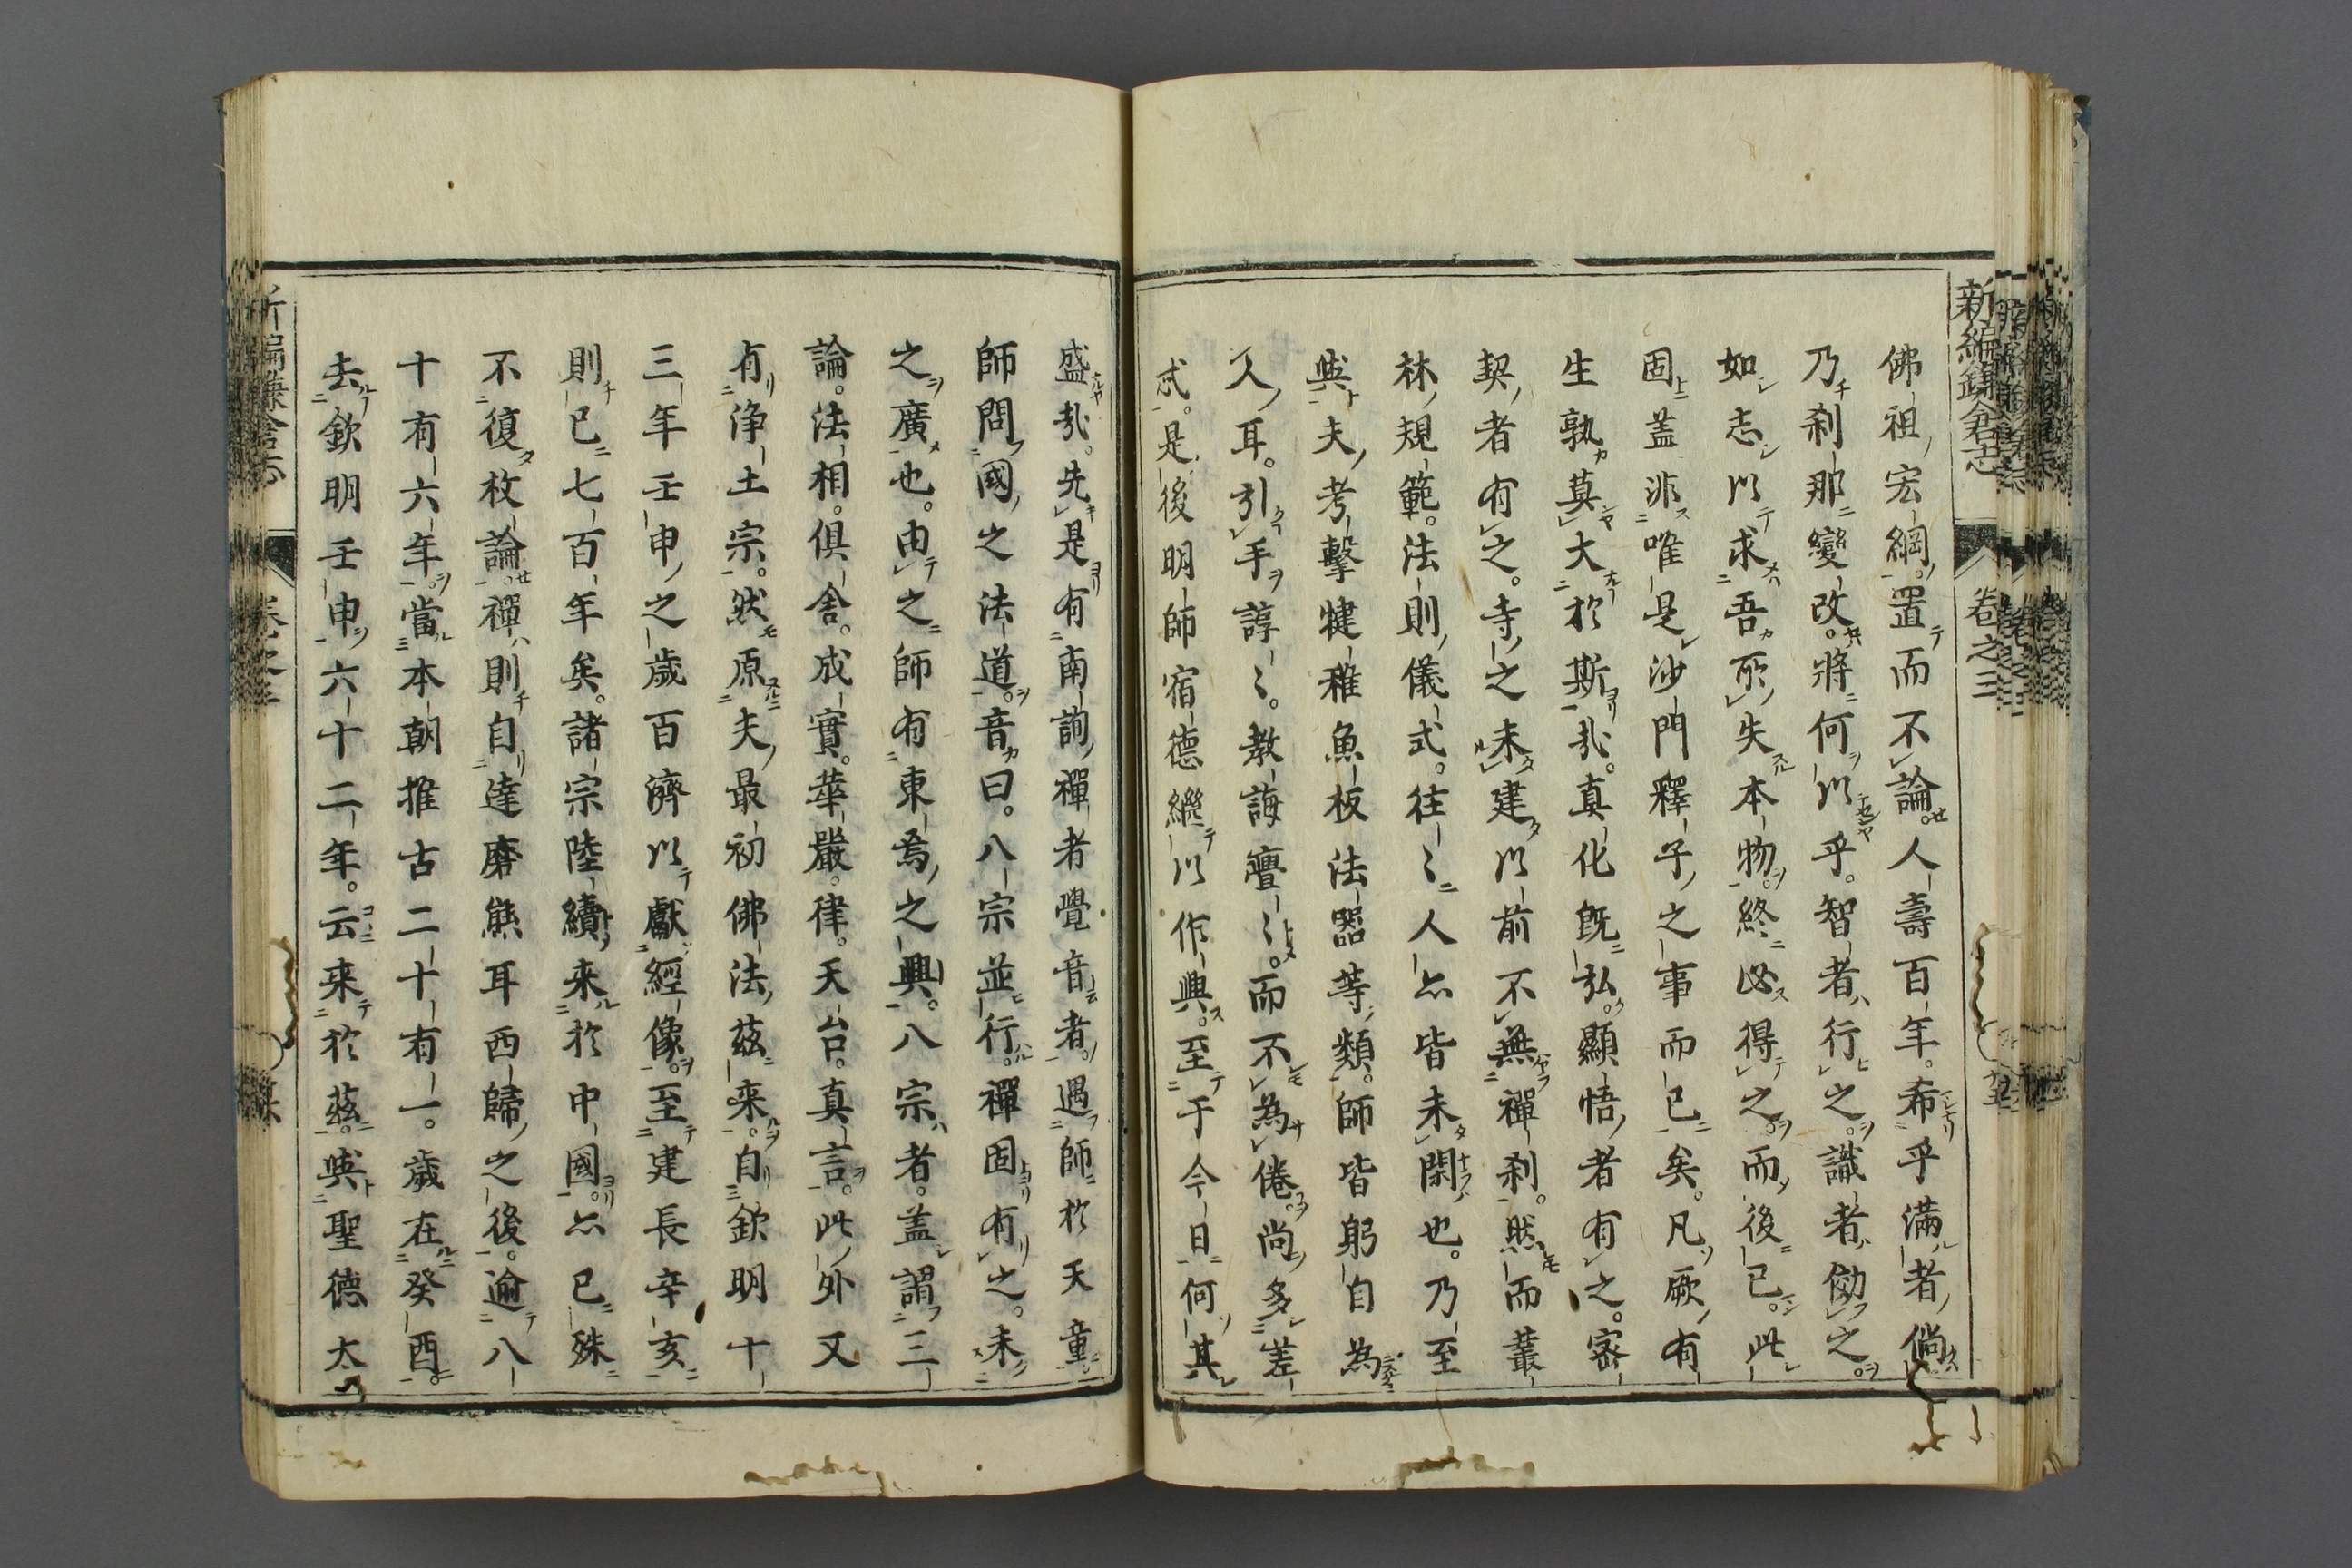 新編鎌倉志 卷之三
佛祖宏綱。置而不論。人壽百年。希乎滿者倘
乃刹那變改。將何以乎。智者行之。識者傚之。
如志以求吾所失本物。終必得之。而後已。此
固蓋非唯是沙門釋子之事而已矣。凡厥有
生孰莫大於斯哉。真化既弘。顯悟者有之。密
契者有之。寺之未建以前不無禪刹。然而叢
林規範。法則儀式。往〻人亦皆未閑也。乃至
與夫考擊犍稚魚板法器等類。師皆躬自為
人耳。引手諄〻。教誨亹〻。而不為倦。尚多差
忒。是後明師宿德繼以作興。至于今日何其
盛哉。先是有南詢禪者覺音者。遇師於天童
師問國之法道。音曰。八宗並行。禪固有之。未
之廣也。由之師有東為之興。八宗者。蓋謂三
論。法相。俱舍。成實。華嚴。律。天台。真言。此外又
有淨土宗。然原夫最初佛法茲来。自欽明十
三年壬申之歲百濟以獻經像。至建長辛亥
則已七百年矣。諸宗陸續来於中國。亦已殊
不復枚論。禪則自達磨熊耳西歸之後。逾八
十有六年。當本朝推古二十有一。歲在癸酉。
去欽明壬申六十二年。云来於茲。與聖德太
新編鎌倉志